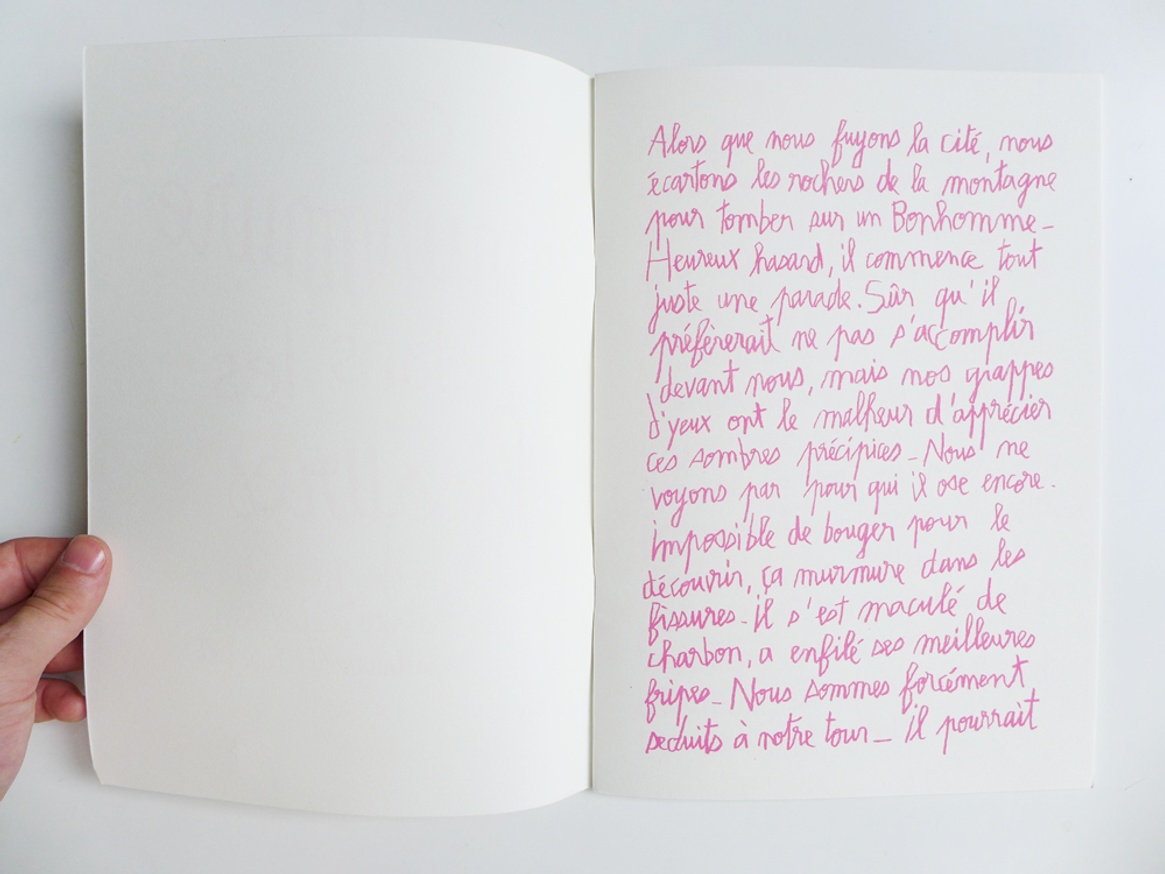 Alors que nous fuyons la cité, nous
écartons les rochers de la montagne
pour tomber sur un Bonhomme_
Heureux hasard, il commence tout
juste une parade. Sûr qu'il
préfèrerait ne pas s'accomplir
devant nous, mais nos grappes
d'yeux ont le malheur d'apprécier
ces sombres précipices_Nous ne
voyons par pour qui il ose encore.
impossible de bouger pour le
découvrir, ça murmure dans les
fissures_il s'est maculé de
charbon, a enfilé ses meilleures
fripes_Nous sommes forcément
seduits à notre tour_ il pourrait